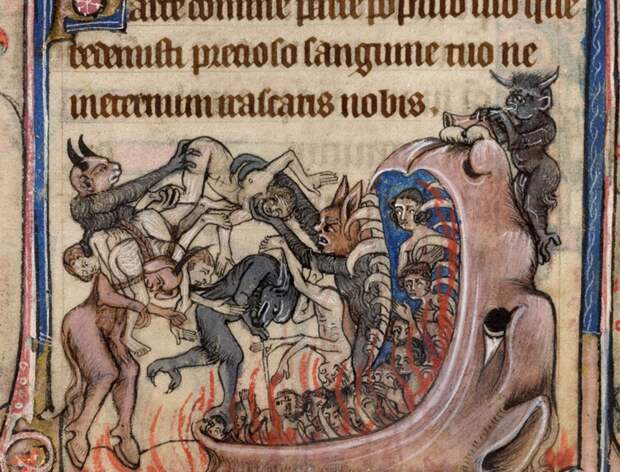 Parce domine parce populo tuo que
redemisti precioso sanguine tuo ne
ineternum irascaris nobis.